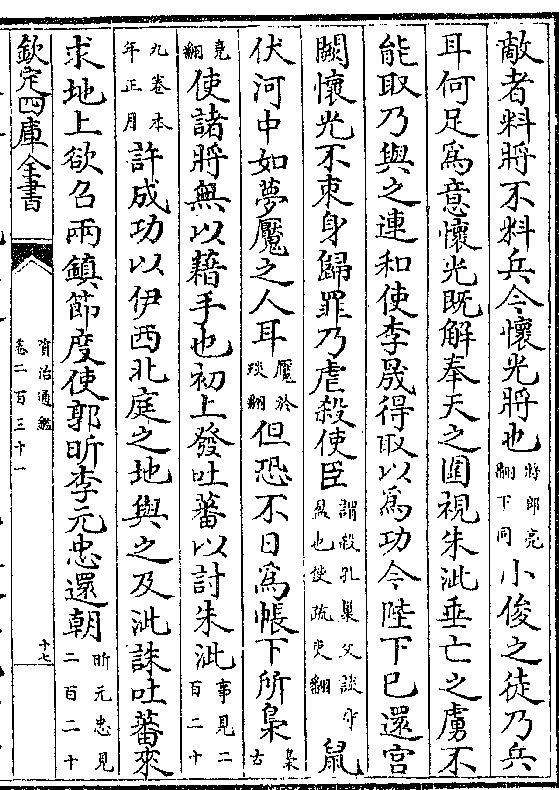 敵者料將不料兵今懷光將也將郎亮翻下同小俊之徒乃兵
耳何足為意懷光既解奉天之圍視朱泚垂亡之虜不
能取乃與之連和使李晟得取以為功今陛下已還宮
闕懷光不束身歸罪乃虐殺使臣謂殺孔巢父談守盈也使疏吏翻鼠
伏河中如夢魘之人耳魘於琰翻但恐不日為帳下所梟梟古
堯翻使諸將無以藉手也初上發吐蕃以討朱泚事見二百二十
九卷本年正月許成功以伊西北庭之地與之及泚誅吐蕃來
求地上欲召兩鎮節度使郭昕李元忠還朝昕元忠見二百二十
欽定四庫全書
資治通鑑
卷二百三十一
十七